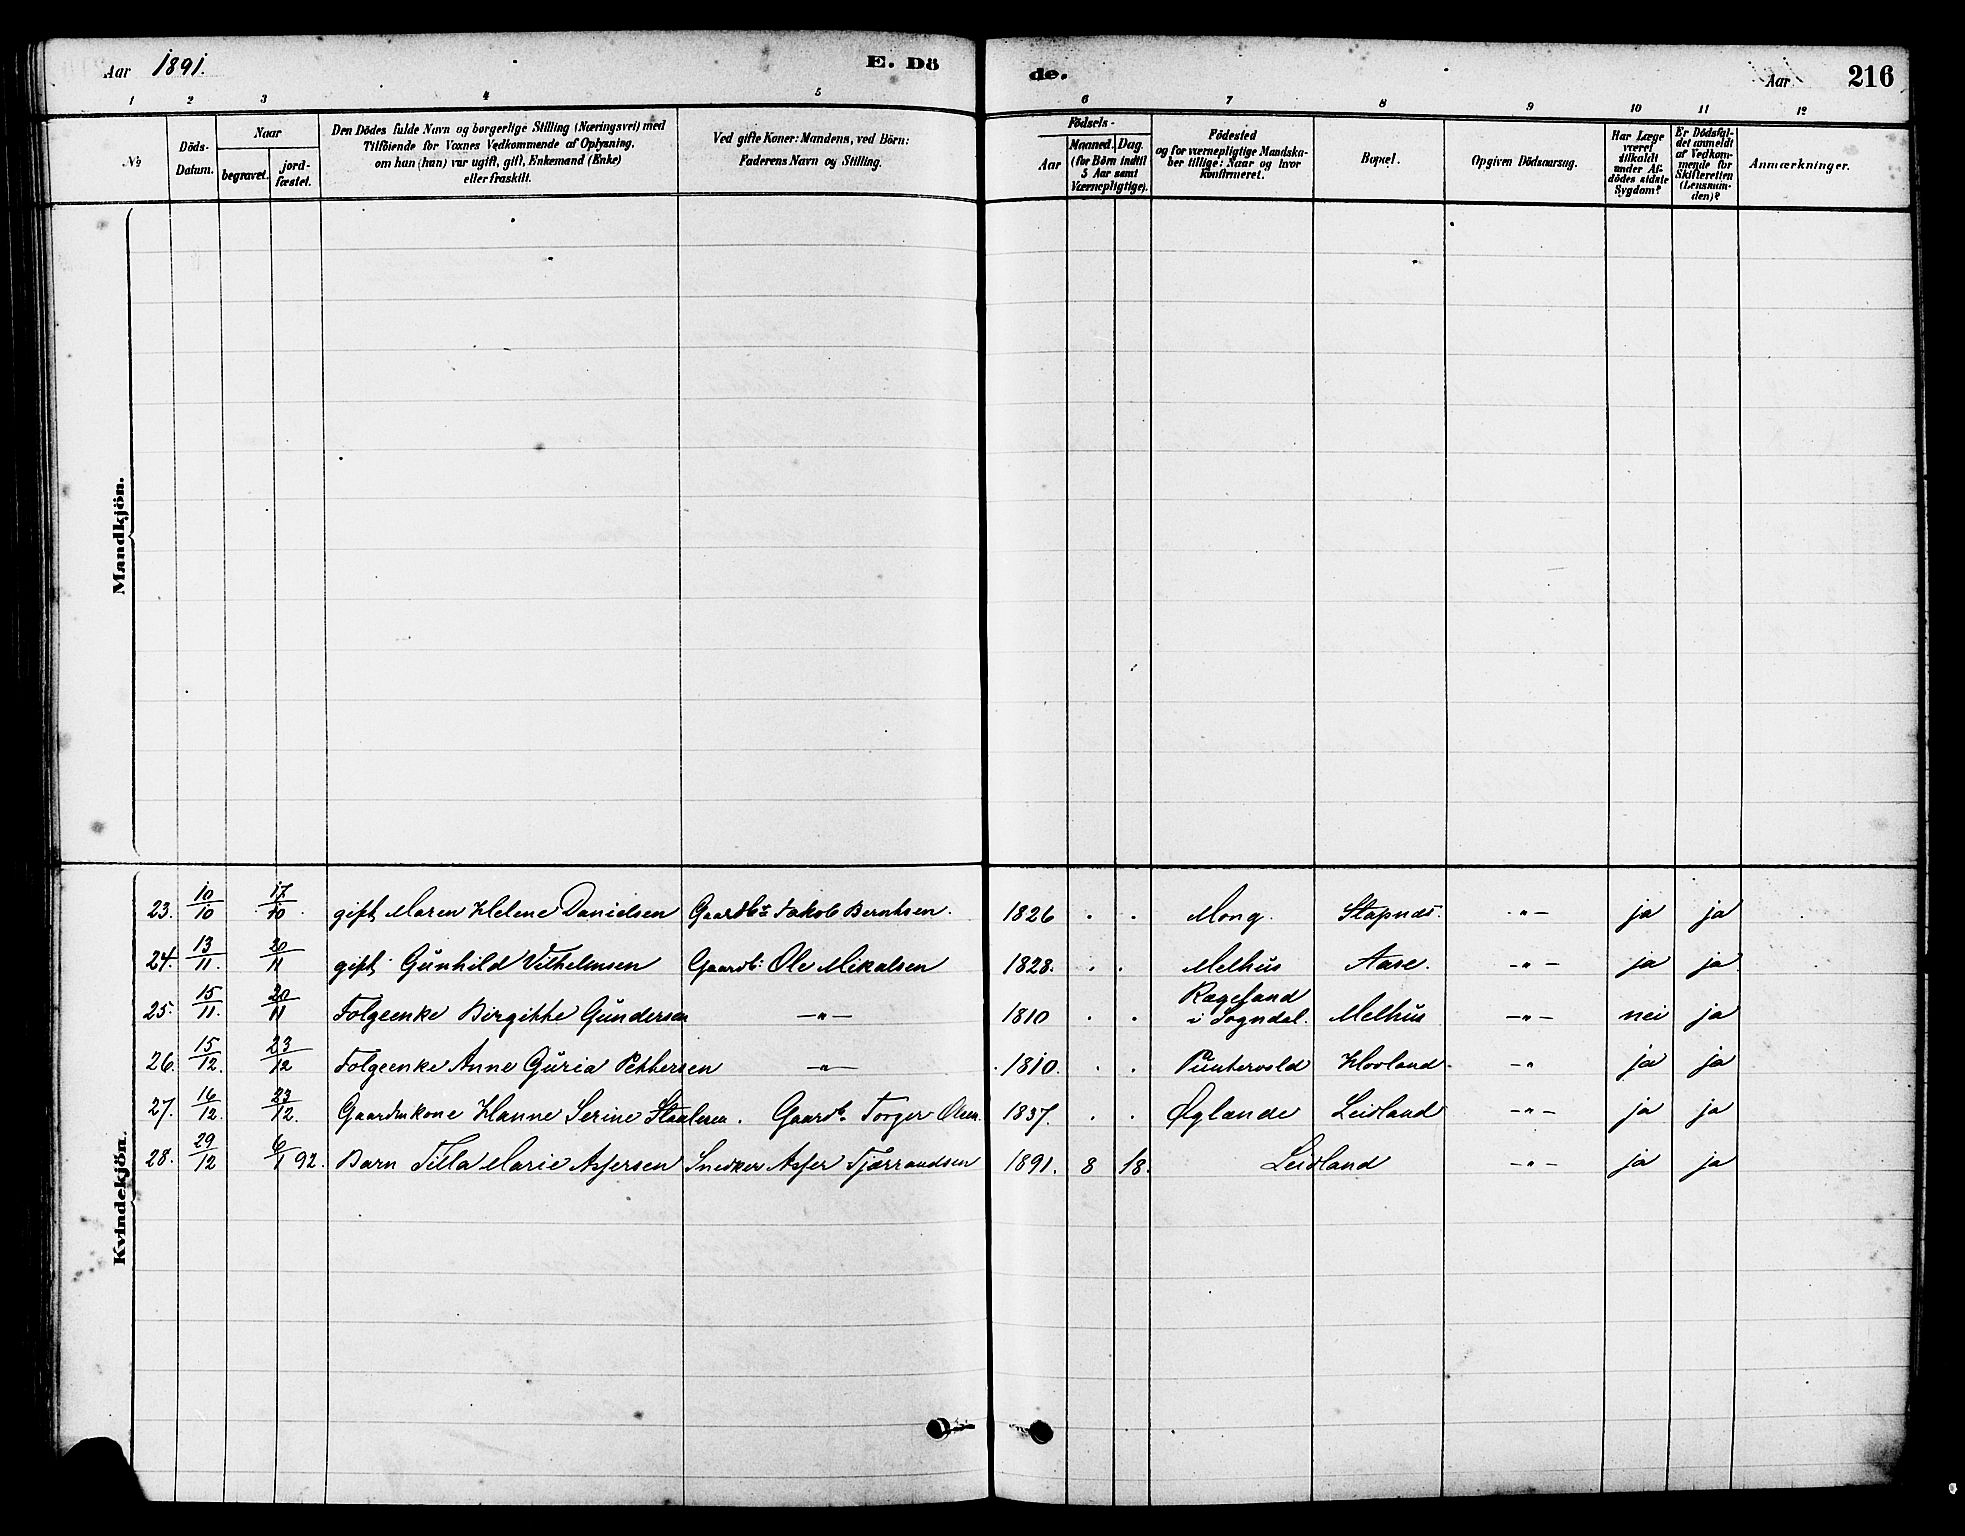 Aar 1891. E. Dö de. Aar 216
1 2 3 4 5 6 7 8 9 10 11 12
№
Döds-Datum.
Naar
begravet. jord-fæstet.
Den Dödes fulde Navn og borgerlige Stilling (Næringsvei) med
Tilföiende for Voxnes Vedkommende af Oplysning,
om han (hun) var ugift, gift, Enkemand (Enke)
eller fraskilt.
Ved gifte Koner: Mandens, ved Börn:
Faderens Navn og Stilling.
Födsels-
Aar
Maaned. Dag.
(for Börn indtil
5 Aar samt
Værnepligtige).
Födested
og for værnepligtige Mandska-
ber tillige: Naar og hvor
konfirmeret.
Bopæl.
Opgiven Dödsaarsag.
Har Læge
været
tilkaldt
under Af-
dödes sidste
Sygdom?
Er Dödsfal-
det anmeldt
af Vedkom-
mende for
Skifteretten
(Lensman-
den)?
Anmærkninger.
Mandkjön.
Kvindekjön.
23. 10/10 17/10. gift Maren Helene Danielsen Gaardbr Jakob Berntsen. 1826 . . Mong. Stapnes. -"- ja ja
24. 13/11. 20/11 gift Gunhild Vilhelmsen Gaardb: Ole Mikalsen 1828. . . Melhus Aase. -"- ja ja
25. 15/11. 20/11 Folgeenke Birgitte Gundersen -"- 1810 . . Rægefand
i Sogndal. Melhus -"- nei ja
26. 15/12. 23/12 Folgeenke Anne Guria Pettersen -"- 1810. . . Puntervold Hovland -"- ja ja
27. 16/12. 23/12. Gaardmkone Hanne Serine Staalesen. Gaardb. Torger Olsen. 1837. . . Øglænde Leidland -"- ja ja
28. 29/12 6/1 92. Barn Tilla Marie Asfersen Snedker Asfer Tjærrandsen 1891. 8 18. Leidland -"- ja ja